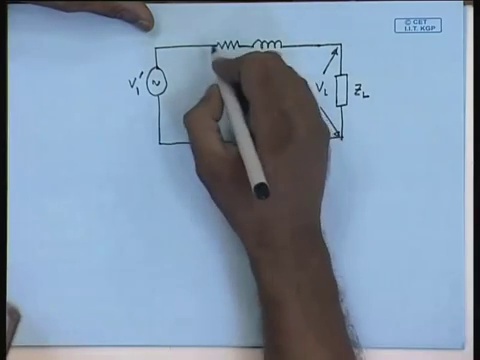 © CET
I.I.T. KGP
V₁'
V_L
Z_L